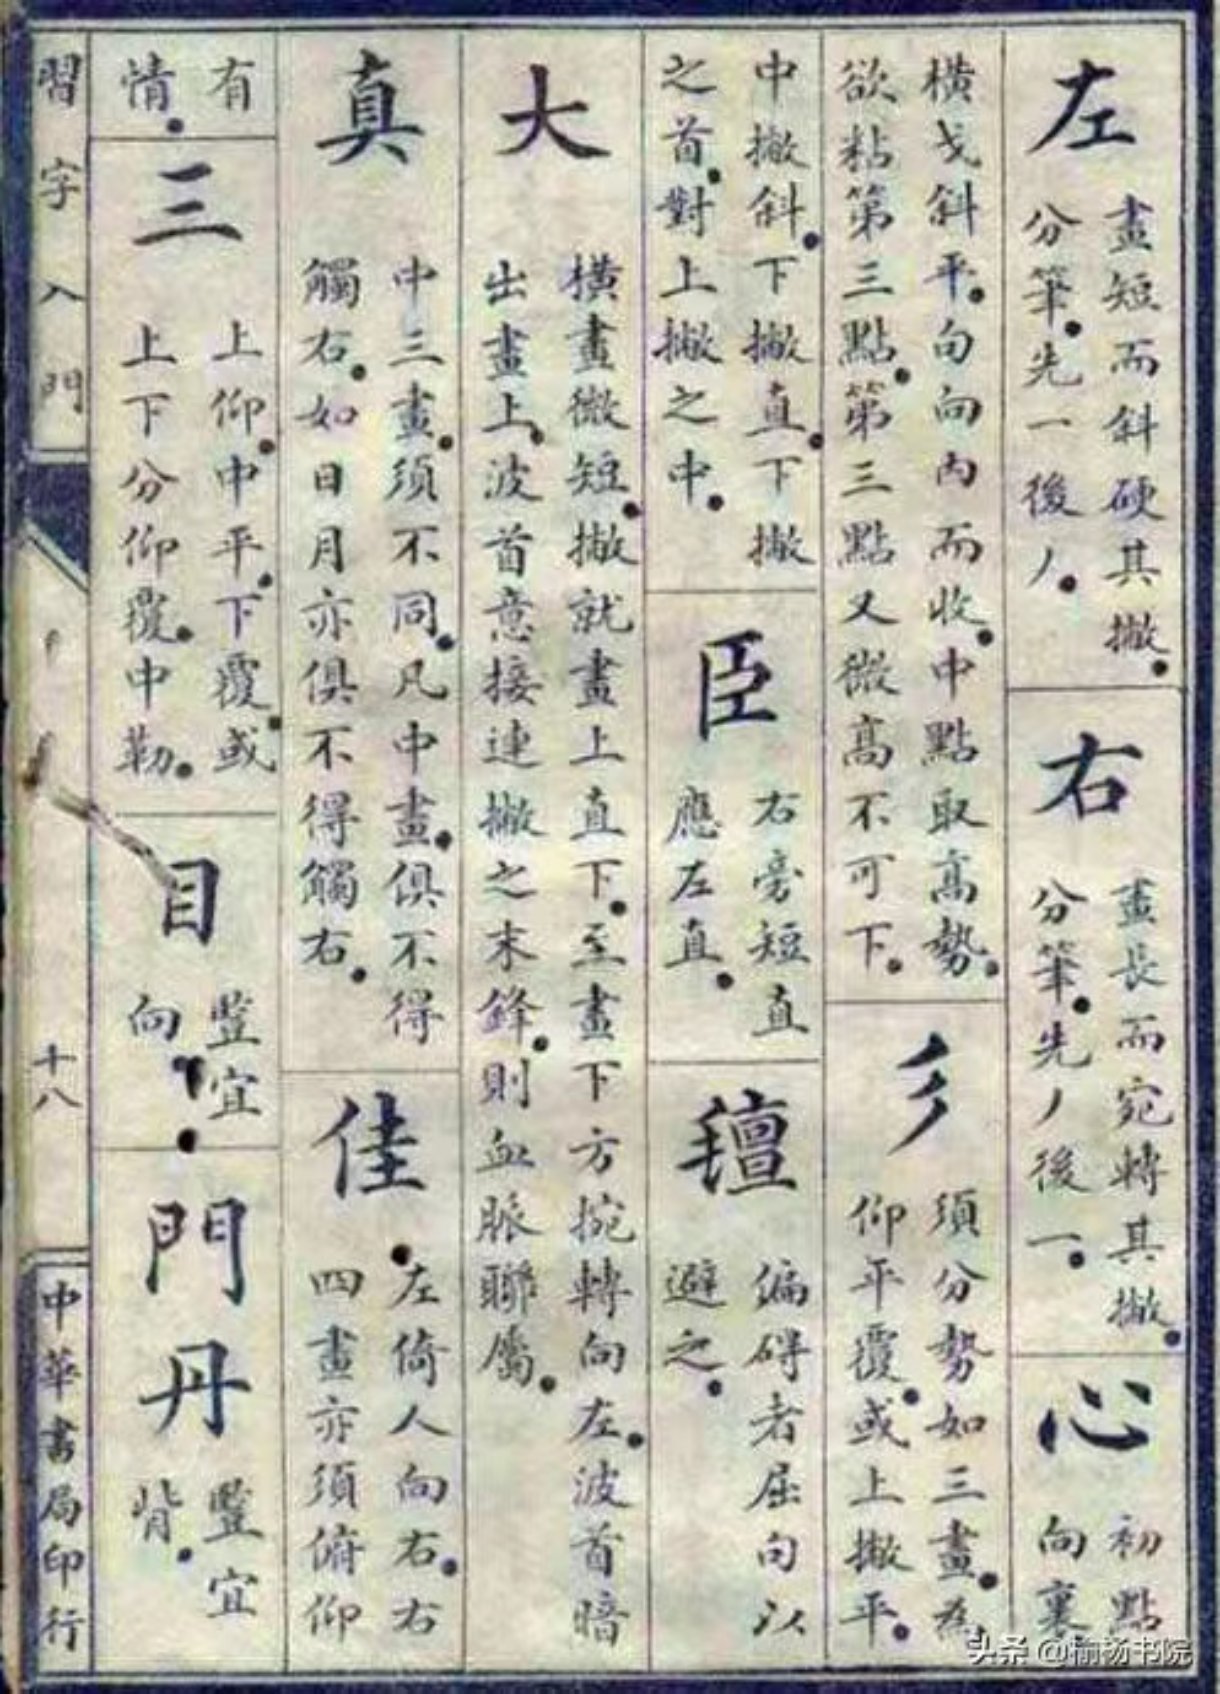 左
畫短而斜硬其撇。
分筆。先一後丿。
右
畫長而宛轉其撇。
分筆。先丿後一。
心
初點
向裏
橫戈斜平。句向內而收。中點取高勢。
欲粘第三點。第三點又微高不可下。
彡
須分勢如三畫。為
仰平覆。或上撇平。
中撇斜。下撇直。下撇
之首。對上撇之中。
臣
右旁短直
應左直。
偏碍者屈句以
避之。
大
橫畫微短。撇就畫上直下。至畫下方捥轉向左。波首暗
出畫上。波首意接連撇之末鋒。則血脈聯屬。
真
中三畫。須不同。凡中畫。俱不得
觸右。如日月亦俱不得觸右。
佳
左倚人向右。右
四畫亦須俯仰
有
情。
三
上仰。中平。下覆。或
上下分仰覆。中勒。
目
豎宜
向。
門丹
豎宜
背。
習字入門
十八
中華書局印行
头条 @榆扬书院